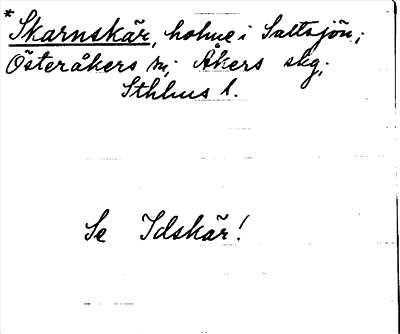 *Skarnskär, holme i Saltsjön;
Österåkers sn; Åkers skg;
Sthlms l.
Se Idskär!